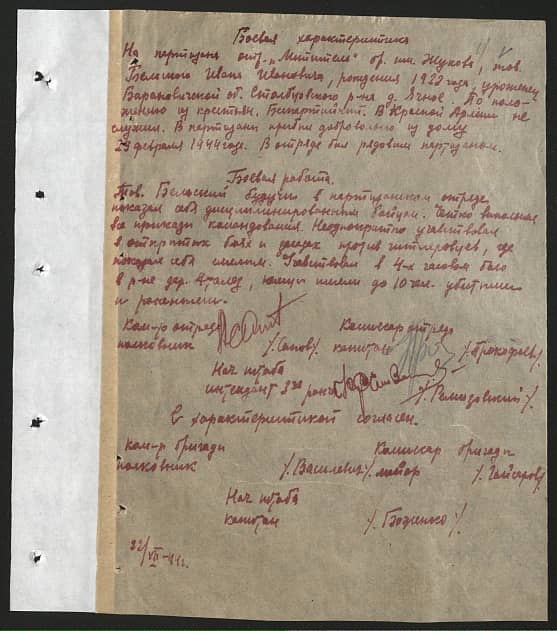 Боевая характеристика
На партизана отр. „Мститель" бр. им. Жукова, тов.
Бельского Ивана Ивановича, рождения 1922 года, уроженец
Барановичской об. Столбцовского р-на д. Ячное. По поло-
жению из крестьян. Безпартийный. В Красной Армии не
служил. В партизаны прибыл добровольно из дому
25 февраля 1944 года. В отряде был рядовым партизаном.
Боевая работа.
Тов. Бельский будучи в партизанском отряде
показал себя дисциплинированным бойцом. Четко выполнял
все приказы командования. Неоднократно участвовал
в открытых боях и засадах против гитлеровцев, где
показал себя смелым. Участвовал в 4-х часовом бою
в р-не дер. немцы имели до 10 чел. убитыми
и ранеными.
Ком-р отряда Комиссар отряда
полковник капитан /Прокофьев/
Нач штаба
интендант 3го ранга
С характеристикой согласен.
Ком-р бригады Комиссар бригады
полковник /.Василевич./ майор /.Гайсаров/
Нач штаба
капитан /.Боженко./
VII-44г.